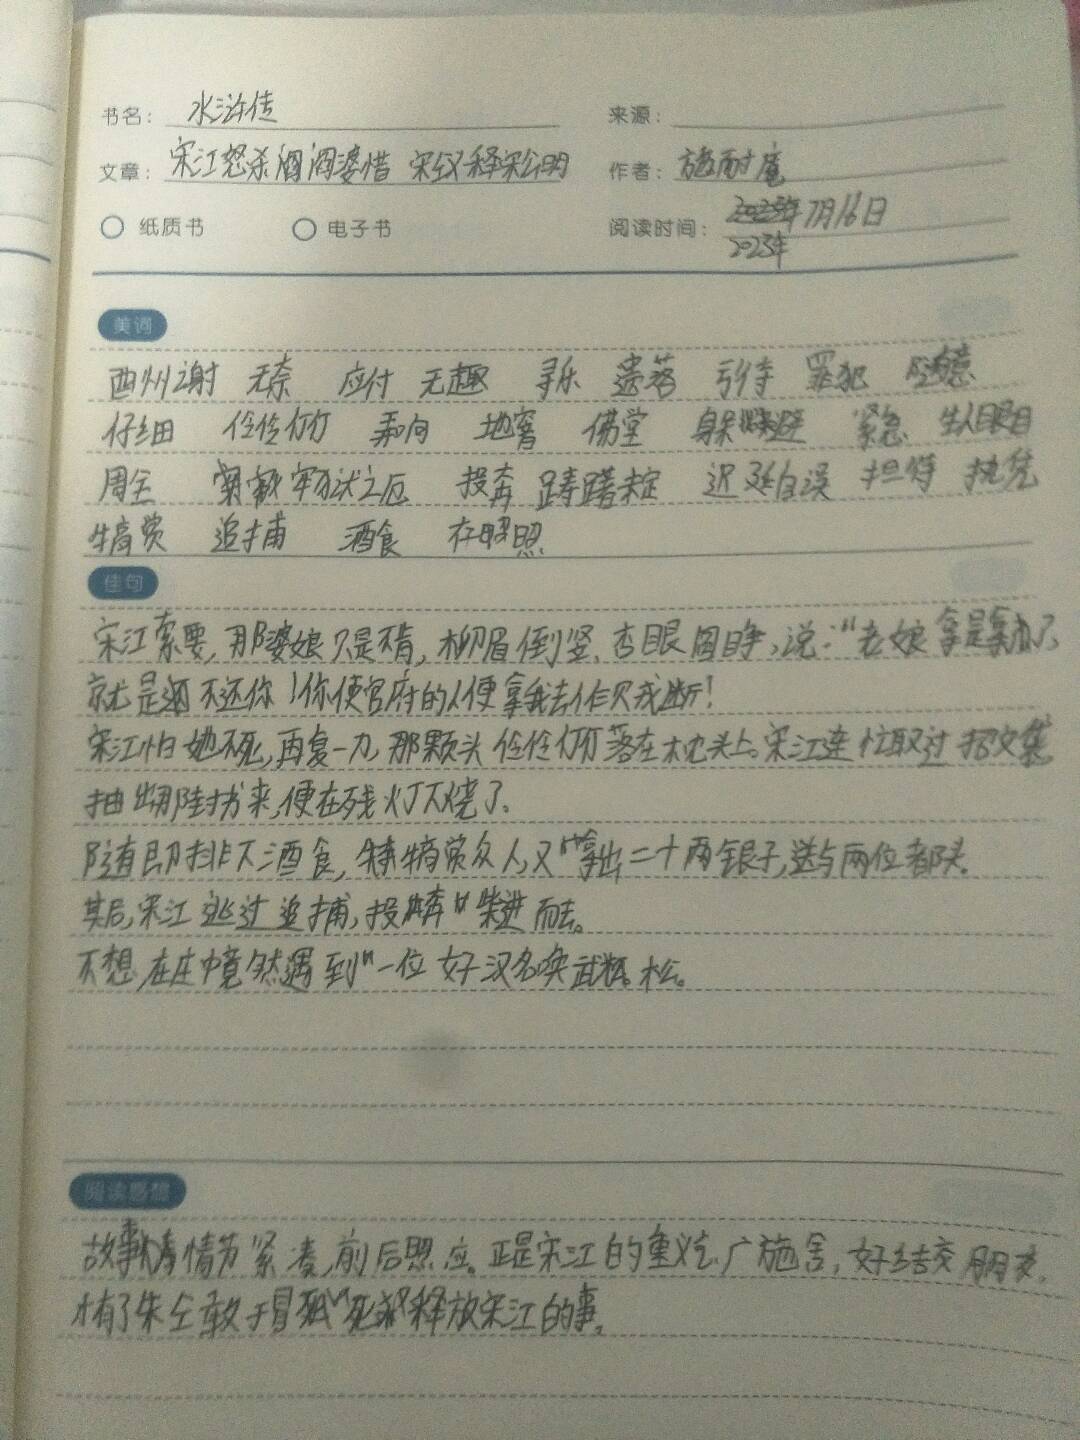 书名： 水浒传 来源：
文章： 宋江怒杀阎阎婆惜 宋仪释宋公明 作者： 施耐庵
纸质书 电子书 阅读时间： 7月16日
2023年
美词
酬谢 无奈 应付 无趣 寻乐 遗落 引得 罪犯 随意
仔细 伶伶仃仃 弄向 地窖 佛堂 躲避 紧急 生人眼目
周全 牢狱之厄 投奔 踌躇未定 迟延自误 担待 执凭
犒赏 追捕 酒食 在照
佳句
宋江索要，那婆娘只是不肯，柳眉倒竖、杏眼圆睁，说："老娘拿是拿了，
就是不还你！你使官府的人便拿我去作贝戎断！
宋江怕她不死，再复一刀，那颗头伶伶仃仃落在枕头上。宋江连忙取过招文集
抽出那封书来，便在残灯下烧了。
随即排下酒食，犒赏众人，又拿出二十两银子，送与两位都头。
其后，宋江逃过追捕，投奔柴进而去。
不想，在庄中竟然遇到一位好汉名唤武松。
阅读感想
故事情节紧凑，前后照应。正是宋江的重义气广施舍，好结交朋友，
才有了朱仝敢于冒死释放宋江的事。